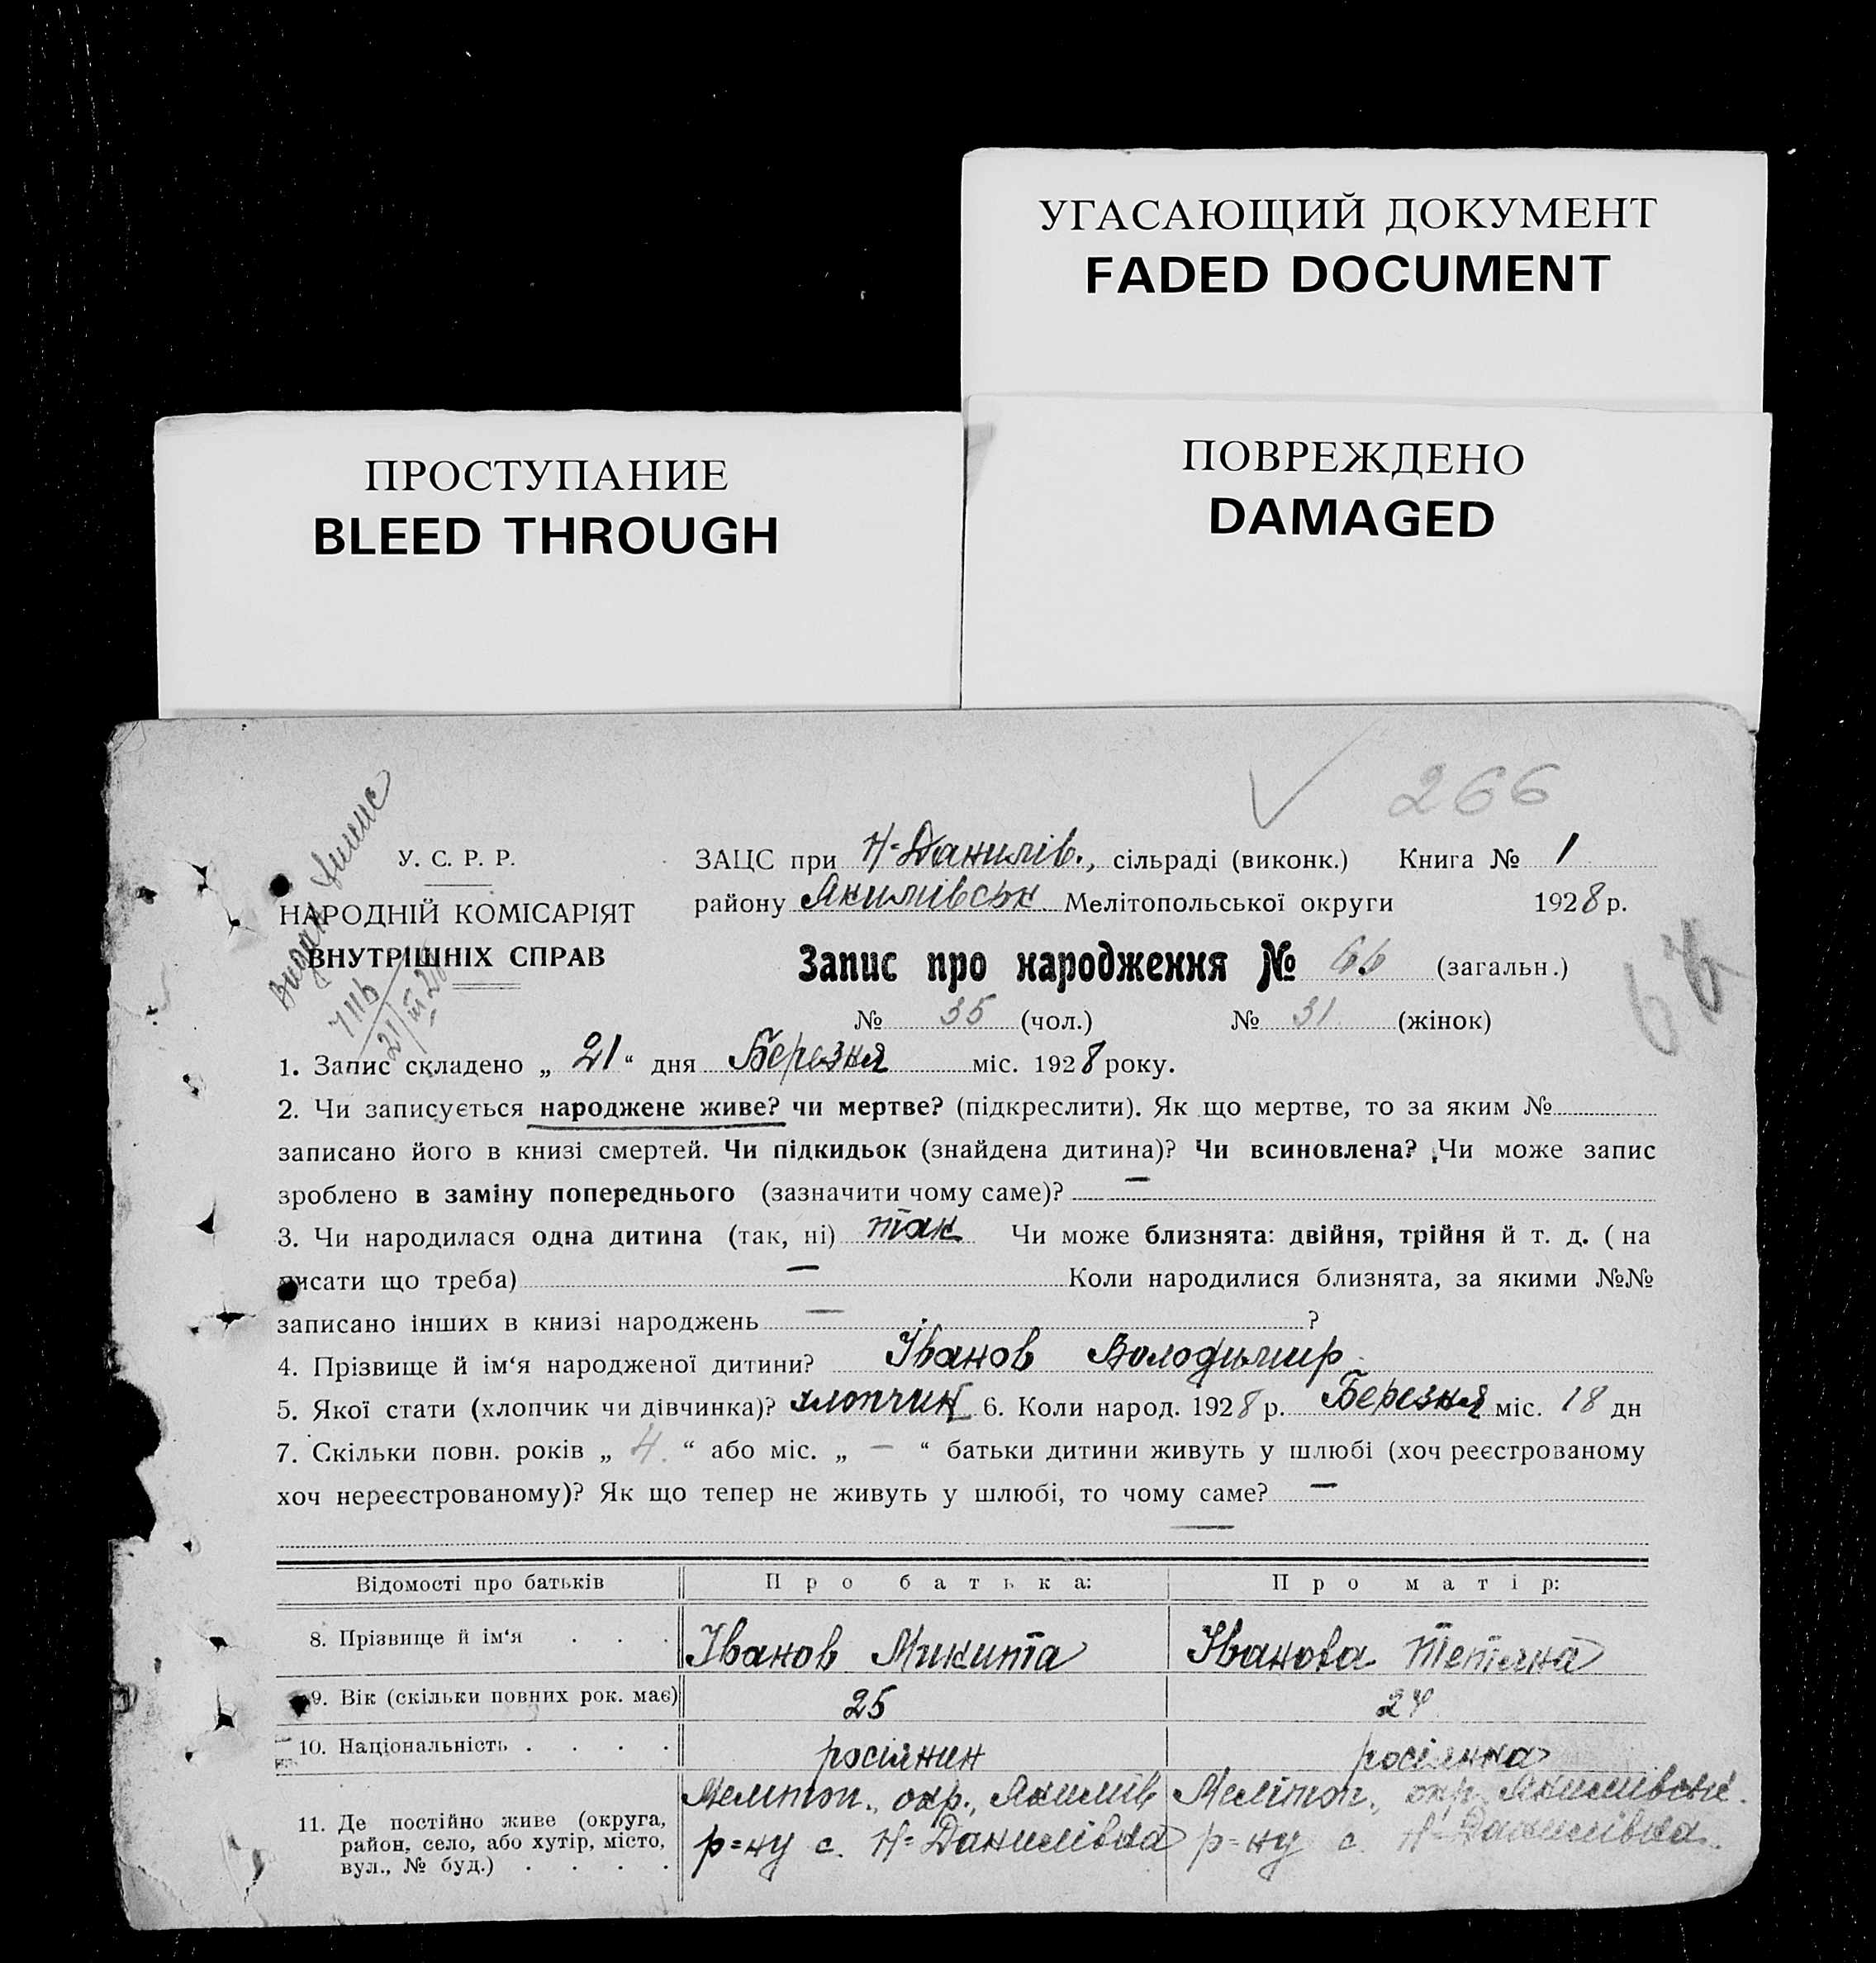 УГАСАЮЩИЙ ДОКУМЕНТ
FADED DOCUMENT
ПРОСТУПАНИЕ
BLEED THROUGH
ПОВРЕЖДЕНО
DAMAGED
266
У. С. Р. Р.
НАРОДНІЙ КОМІСАРІЯТ
ВНУТРІШНІХ СПРАВ
ЗАЦС при Н-Данилів., сільраді (виконк.) Книга № 1
району Якимівськ Мелітопольської округи 1928 р.
Запис про народження № 66 (загальн.)
№ 35 (чол.) № 31 (жінок)
1. Запис складено „ 21 “ дня Березня міс. 1928 року.
2. Чи записується народжене живе? чи мертве? (підкреслити). Як що мертве, то за яким №
записано його в книзі смертей. Чи підкидьок (знайдена дитина)? Чи всиновлена? Чи може запис
зроблено в заміну попереднього (зазначити чому саме)? —
3. Чи народилася одна дитина (так, ні) так Чи може близнята: двійня, трійня й т. д. ( на
писати що треба) — Коли народилися близнята, за якими №№
записано інших в книзі народжень — ?
4. Прізвище й ім‘я народженої дитини? Іванов Володимир
5. Якої стати (хлопчик чи дівчинка)? хлопчик 6. Коли народ. 1928 р. Березня міс. 18 дн
7. Скільки повн. років „ 4. “ або міс. „ — “ батьки дитини живуть у шлюбі (хоч реєстрованому
хоч нереєстрованому)? Як що тепер не живуть у шлюбі, то чому саме? —
Відомості про батьків Про батька: Про матір:
8. Прізвище й ім‘я . . . Іванов Микита Іванова Тетяна
9. Вік (скільки повних рок. має) 25 24
10. Національність . . . . росіянин росіянка
11. Де постійно живе (округа, район, село, або хутір, місто, вул., № буд.) . . . .
Меліт
оп., окр., Якимів р=ну с. Н-Данилівка
Мелітоп., окр. Якимівськ. р=ну с. Н-Данилівка.